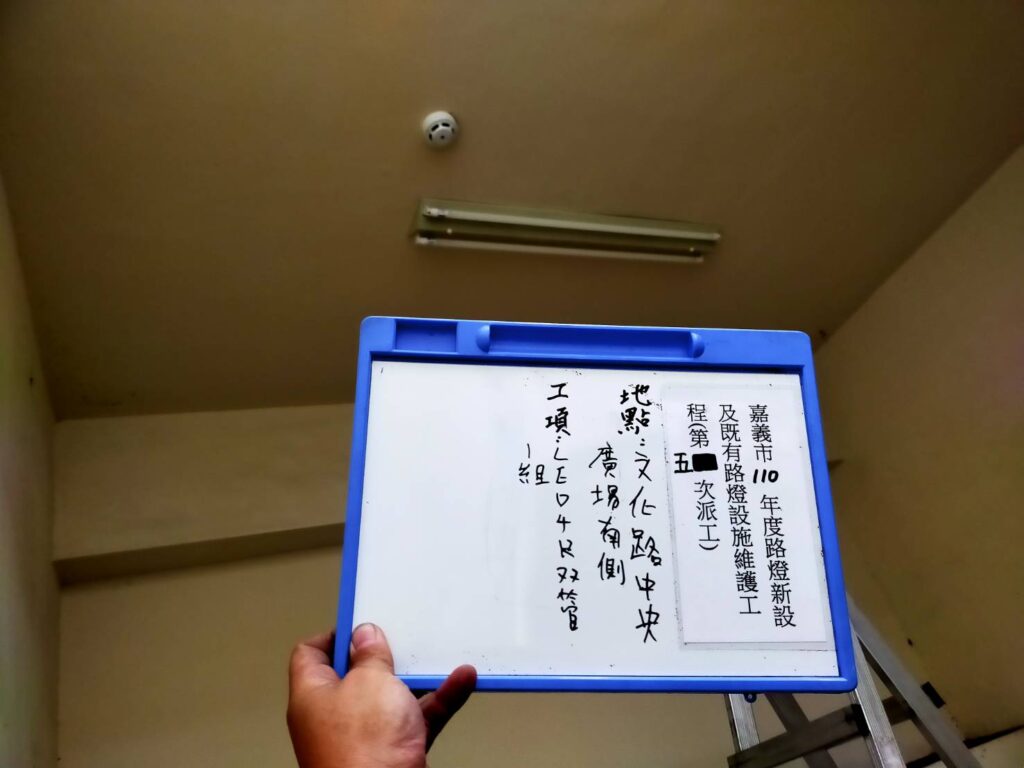 嘉義市110年度路燈新設
及既有路燈設施維護工
程(第五次派工)
地點:文化路中央
廣場南側
工項:LED4R双管
1組